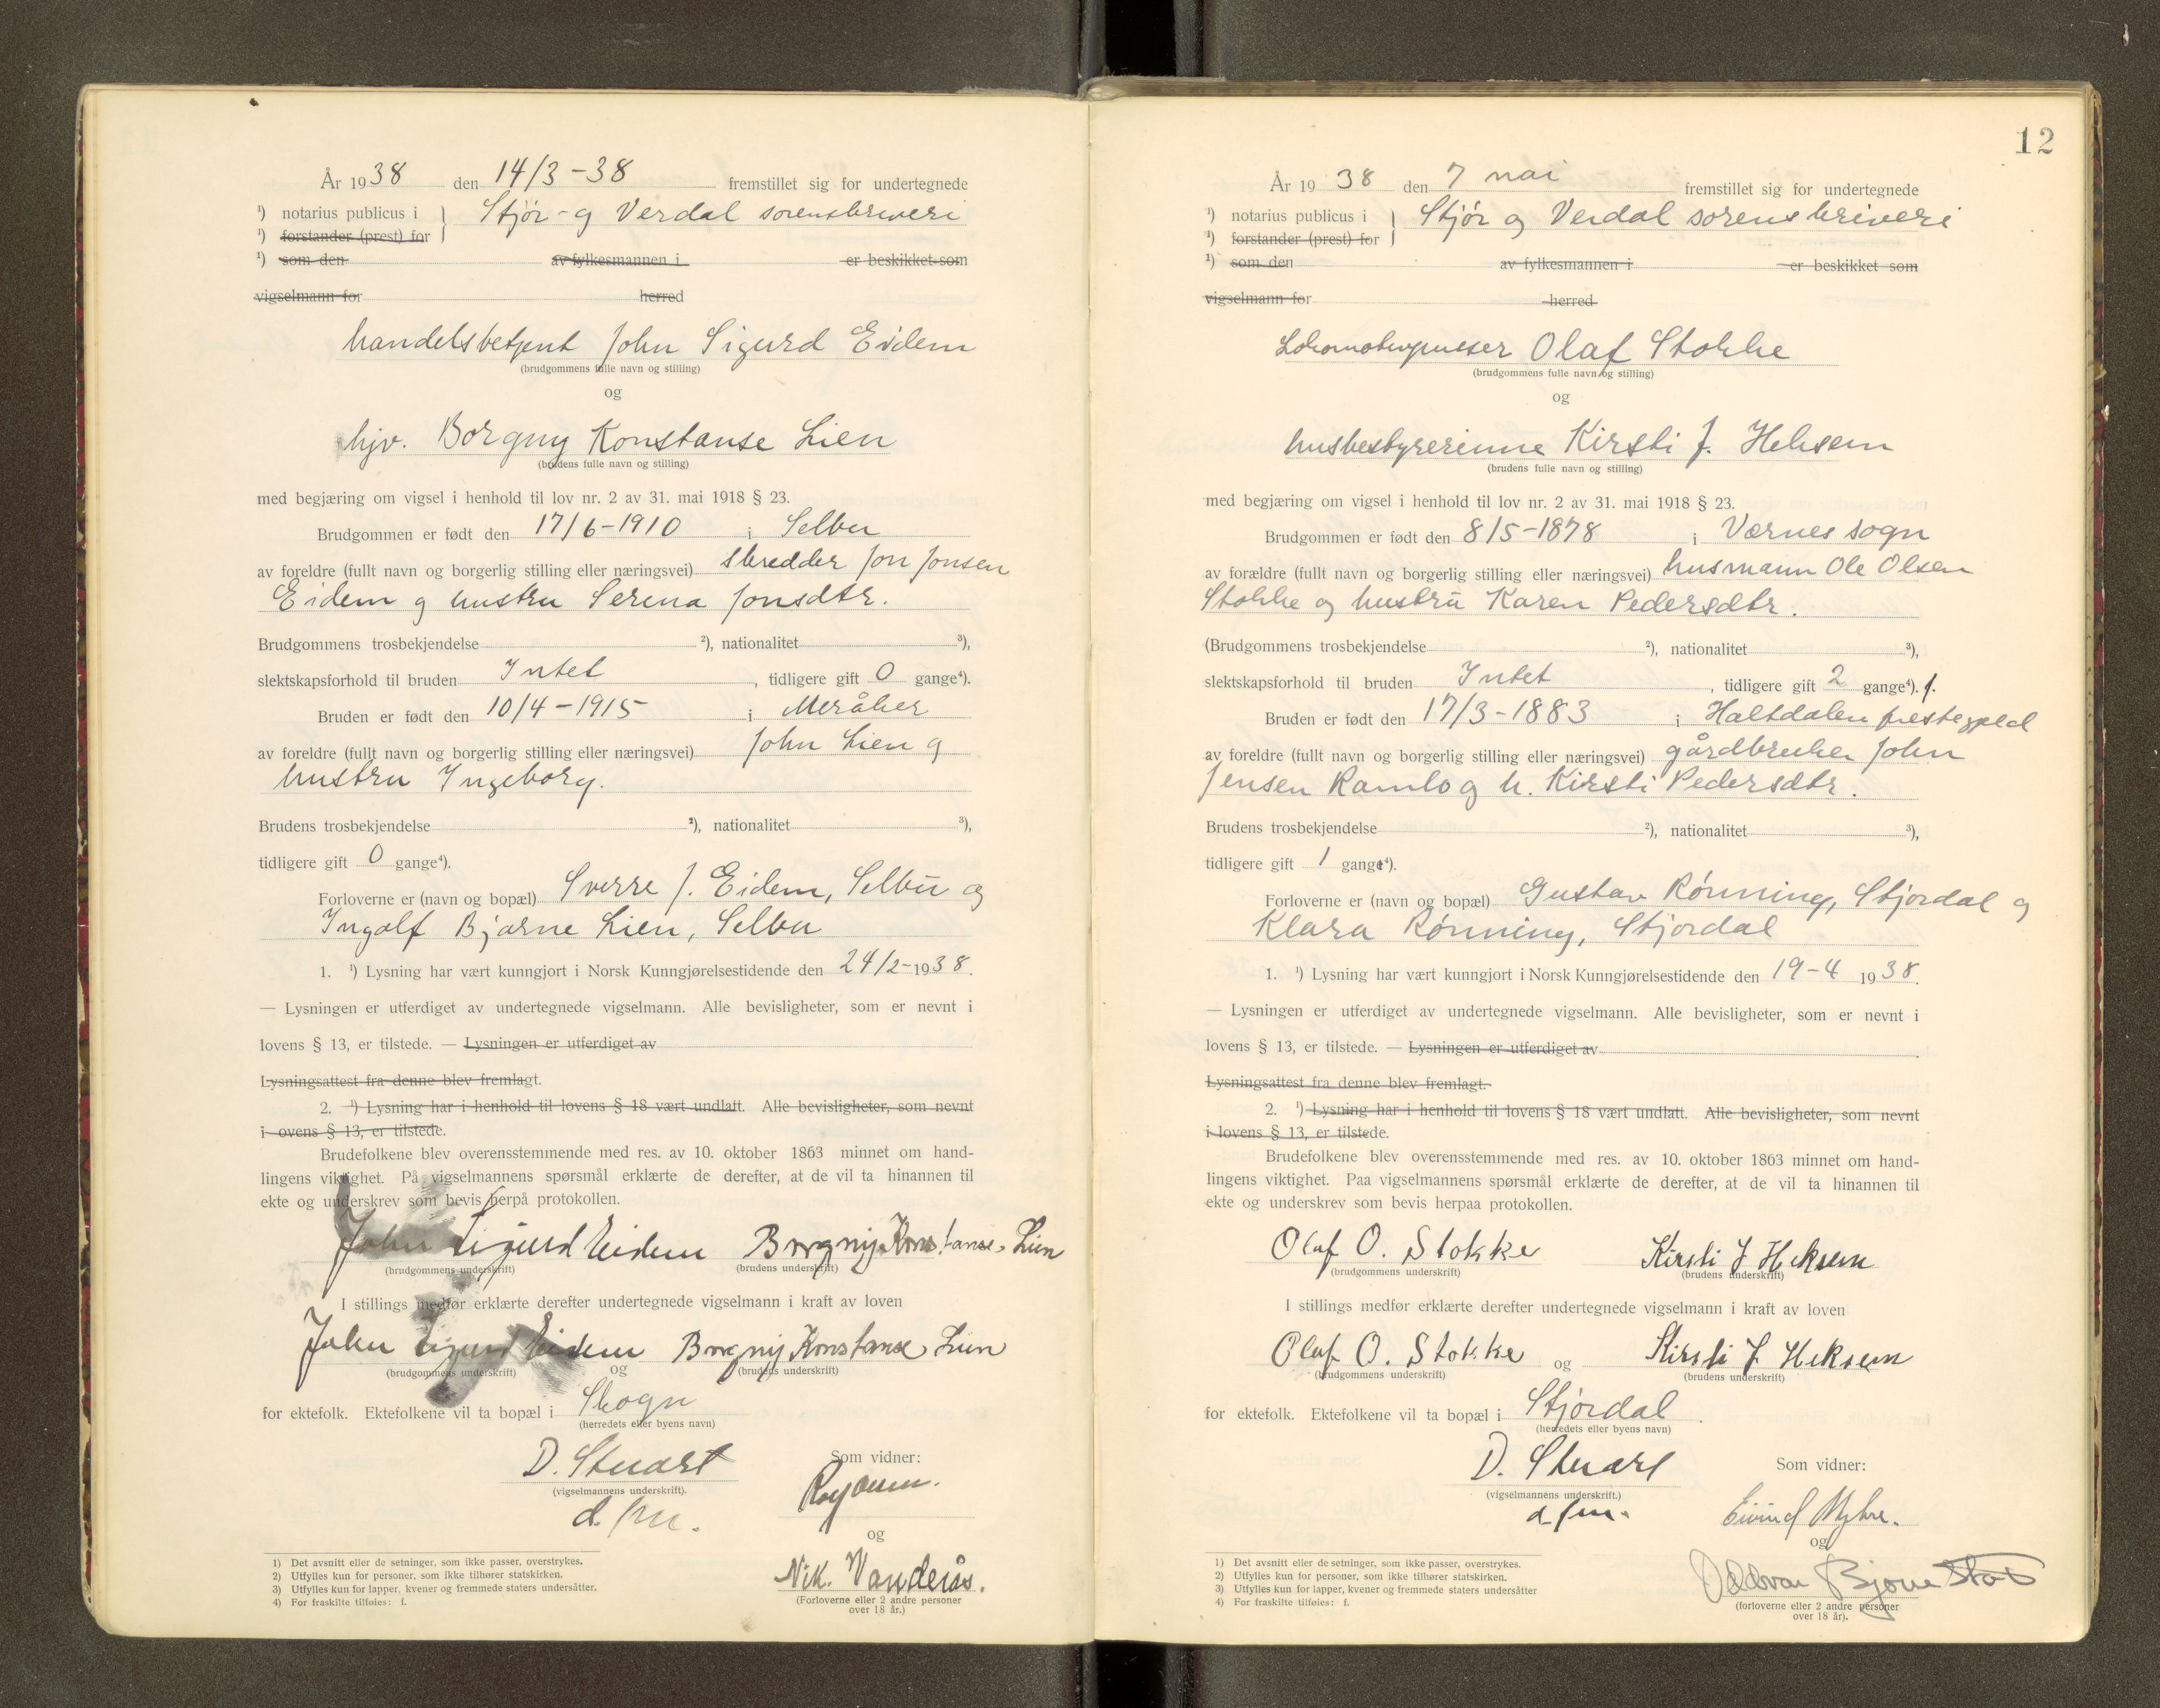 År 1938 den 14/3-38 fremstillet sig for undertegnede
¹) notarius publicus i } Stjør- og Verdal sorenskriveri
¹) forstander (prest) for
¹) som den av fylkesmannen i er beskikket som
vigselmann for herred
handelsbetjent John Sigurd Eidem
(brudgommens fulle navn og stilling)
og
hjv. Borgny Konstanse Lien
(brudens fulle navn og stilling)
med begjæring om vigsel i henhold til lov nr. 2 av 31. mai 1918 § 23.
Brudgommen er født den 17/6-1910 i Selbu
av foreldre (fullt navn og borgerlig stilling eller næringsvei) skredder Jon Jonsen
Eidem og hustru Serena Jonsdtr.
Brudgommens trosbekjendelse ²), nationalitet ³),
slektskapsforhold til bruden Intet, tidligere gift 0 gange⁴).
Bruden er født den 10/4-1915 i Meråker
av foreldre (fullt navn og borgerlig stilling eller næringsvei) John Lien og
hustru Ingeborg.
Brudens trosbekjendelse ²), nationalitet ³),
tidligere gift 0 gange⁴).
Forloverne er (navn og bopæl) Sverre J. Eidem, Selbu og
Ingolf Bjarne Lien, Selbu
1. ¹) Lysning har vært kunngjort i Norsk Kunngjørelsestidende den 24/2-1938.
— Lysningen er utferdiget av undertegnede vigselmann. Alle bevisligheter, som er nevnt i
lovens § 13, er tilstede. — Lysningen er utferdiget av
Lysningsattest fra denne blev fremlagt.
2. ¹) Lysning har i henhold til lovens § 18 vært undlatt. Alle bevisligheter, som nevnt
i ovens § 13, er tilstede.
Brudefolkene blev overensstemmende med res. av 10. oktober 1863 minnet om hand-
lingens viktighet. På vigselmannens spørsmål erklærte de derefter, at de vil ta hinannen til
ekte og underskrev som bevis herpå protokollen.
John Sigurd Eidem Borgny Konstanse Lien
(brudgommens underskrift) (brudens underskrift)
I stillings medfør erklærte derefter undertegnede vigselmann i kraft av loven
John Sigurd Eidem Borgny Konstanse Lien
(brudgommens underskrift) og (brudens underskrift)
for ektefolk. Ektefolkene vil ta bopæl i Skogn
(herredets eller byens navn)
D. Stuart Som vidner:
(vigselmannens underskrift).
d. fm.
og
Nik. Vanderås.
(Forloverne eller 2 andre personer
over 18 år.)
1) Det avsnitt eller de setninger, som ikke passer, overstrykes.
2) Utfylles kun for personer, som ikke tilhører statskirken.
3) Utfylles kun for lapper, kvener og fremmede staters undersåtter.
4) For fraskilte tilføies: f.
12
År 1938 den 7 mai fremstillet sig for undertegnede
¹) notarius publicus i } Stjør og Verdal sorenskriveri
¹) forstander (prest) for
¹) som den av fylkesmannen i er beskikket som
vigselmann for herred
Lokomotivpusser Olaf Stokke
(brudgommens fulle navn og stilling)
og
husbestyrerinne Kirsti J. Heksem
(brudens fulle navn og stilling)
med begjæring om vigsel i henhold til lov nr. 2 av 31. mai 1918 § 23.
Brudgommen er født den 8/5-1878 i Værnes sogn
av forældre (fullt navn og borgerlig stilling eller næringsvei) husmann Ole Olsen
Stokke og hustru Karen Pedersdtr.
(Brudgommens trosbekjendelse ²), nationalitet ³),
slektskapsforhold til bruden Intet, tidligere gift 2 gange⁴). f.
Bruden er født den 17/3-1883 i Haltdalen prestegjeld
av foreldre (fullt navn og borgerlig stilling eller næringsvei) gårdbruker John
Jensen Ramlo og h. Kirsti Pedersdtr.
Brudens trosbekjendelse ²), nationalitet ³),
tidligere gift 1 gange⁴).
Forloverne er (navn og bopæl) Gustav Rønning, Stjørdal og
Klara Rønning, Stjørdal
1. ¹) Lysning har vært kunngjort i Norsk Kunngjørelsestidende den 19-4 1938.
— Lysningen er utferdiget av undertegnede vigselmann. Alle bevisligheter, som er nevnt i
lovens § 13, er tilstede. — Lysningen er utferdiget av
Lysningsattest fra denne blev fremlagt.
2. ¹) Lysning har i henhold til lovens § 18 vært undlatt. Alle bevisligheter, som nevnt
i lovens § 13, er tilstede.
Brudefolkene blev overensstemmende med res. av 10. oktober 1863 minnet om hand-
lingens viktighet. Paa vigselmannens spørsmål erklærte de derefter, at de vil ta hinannen til
ekte og underskrev som bevis herpaa protokollen.
Olaf O. Stokke Kirsti J Heksem
(brudgommens underskrift) (brudens underskrift)
I stillings medfør erklærte derefter undertegnede vigselmann i kraft av loven
Olaf O. Stokke og Kirsti J. Heksem
(brudgommens underskrift) (brudens underskrift)
for ektefolk. Ektefolkene vil ta bopæl i Stjørdal.
(herredets eller byens navn)
D. Stuart Som vidner:
(vigselmannens underskrift.)
d. fm. Eivind Myhre.
og
Oddvar
(forloverne eller 2 andre personer
over 18 år).
1) Det avsnitt eller de setninger, som ikke passer, overstrykes.
2) Utfylles kun for personer, som ikke tilhører statskirken.
3) Utfylles kun for lapper, kvener og fremmede staters undersåtter
4) For fraskilte tilføies: f.